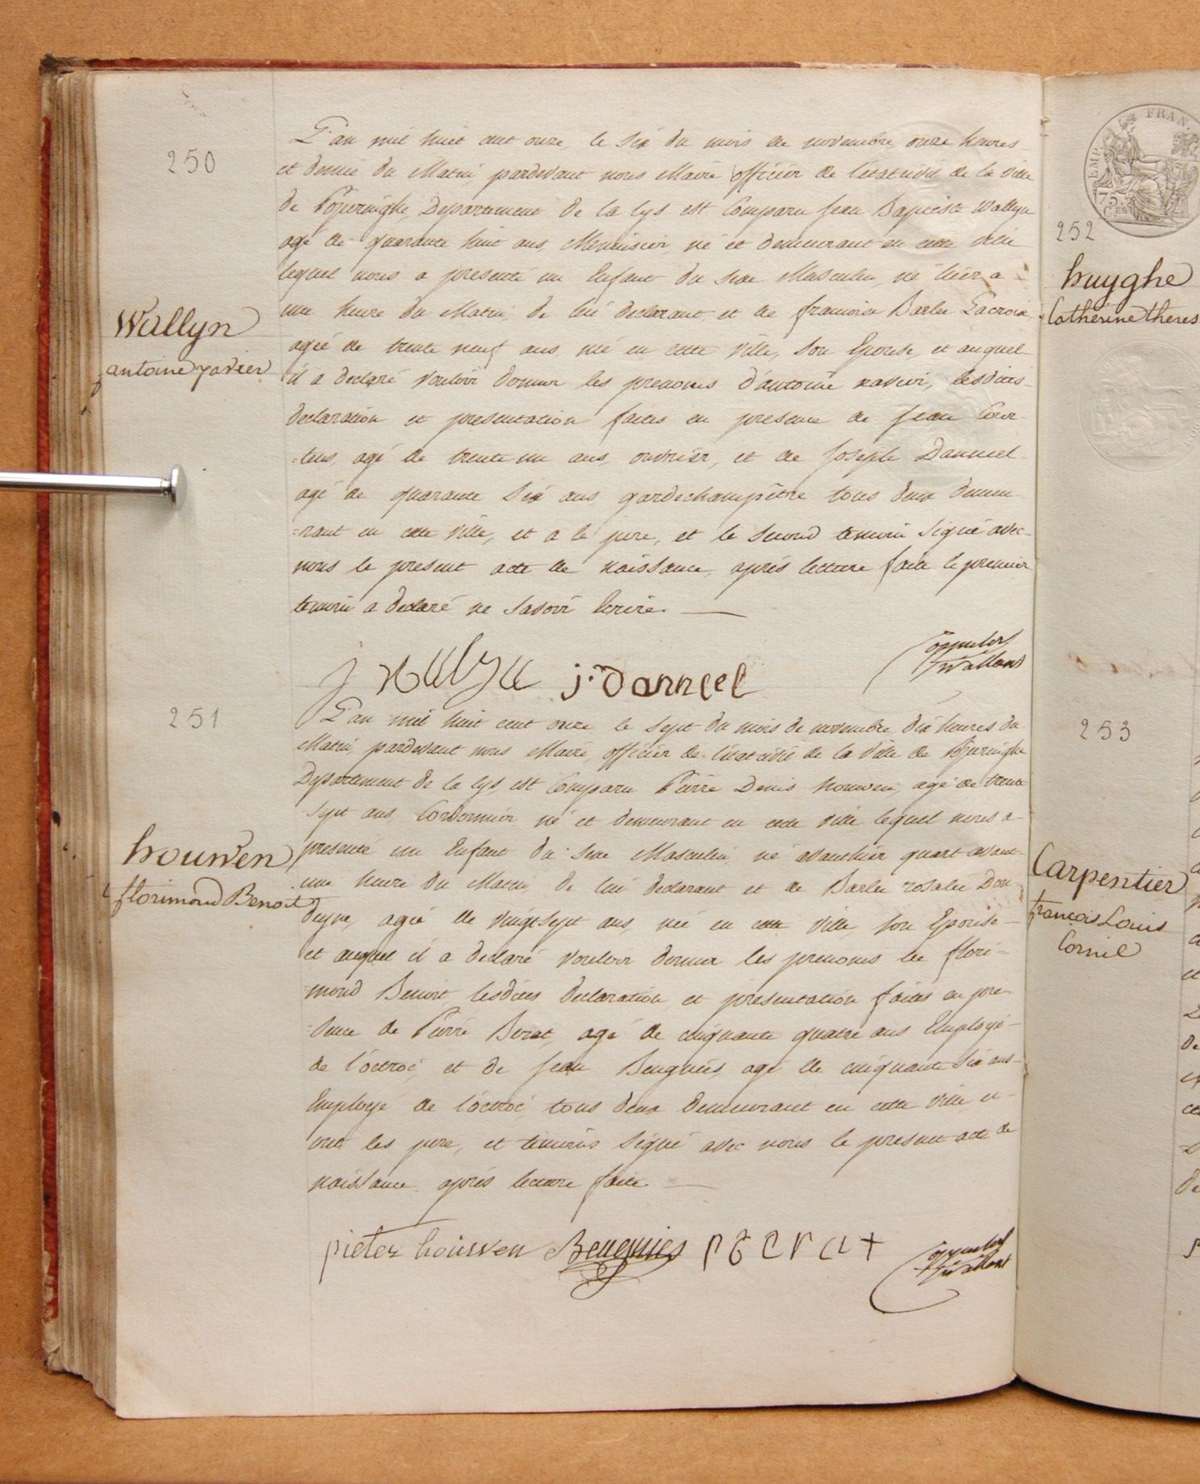 250
Wallyn
antoine xavier
L'an mil huit cent onze le six du mois de novembre onze heures
et demie du Matin, pardevant nous Maire officier de l'état civil de la ville
de Poperinghe Departement de la Lys est Comparu Jean Baptiste Wallyn
agé de quarante huit ans, Menuisier, né et demeurant en cette ville
lequel nous a presenté un Enfant du sexe Masculin, né hier à
une heure du Matin de lui declarant et de françoise Barbe Lacroix
agée de trente neuf ans née en cette ville, son Epouse, et auquel
il a declaré vouloir donner les prenoms d'antoine xavier, lesdites
declaration et presentation faites en presence de Jean
agé de trente un ans, ouvrier, et de Joseph Danneel
agé de quarante six ans gardechampêtre tous deux demeu
-rant en cette ville, et a le pere, et le second temoin signé avec
nous le present acte de naissance, après lecture faite le premier
temoin a declaré ne savoir Ecrire.
j. Danneel
251
houwen
florimond Benoit
L'an mil huit cent onze le sept du mois de novembre dix heures du
Matin pardevant nous Maire, officier de l'état civil de la ville de Poperinghe
Departement de la Lys est Comparu Pierre Denis houwen agé de trente
sept ans Cordonnier né et demeurant en cette ville lequel nous a
presenté un Enfant du sexe Masculin né avanthier quart avant
une heure du Matin de lui declarant et de Barbe rosalie Don
deyne, agée de vingt sept ans, née en cette ville son Epouse
et auquel il a declaré vouloir donner les prenoms de flori-
mond Benoit lesdites declaration et presentation faites en pre
-sence de Pierre agé de cinquante quatre ans Employé
de l'octroi, et de Jean Beugnies agé de cinquante six ans
Employé de l'octroi tous deux demeurant en cette ville et
ont les pere, et temoins signé avec nous le present acte de
naissance après lecture faite.
pieter houwen Beugnies
252
huyghe
Catherine theres
253
Carpentier
françois Louis
Cornil